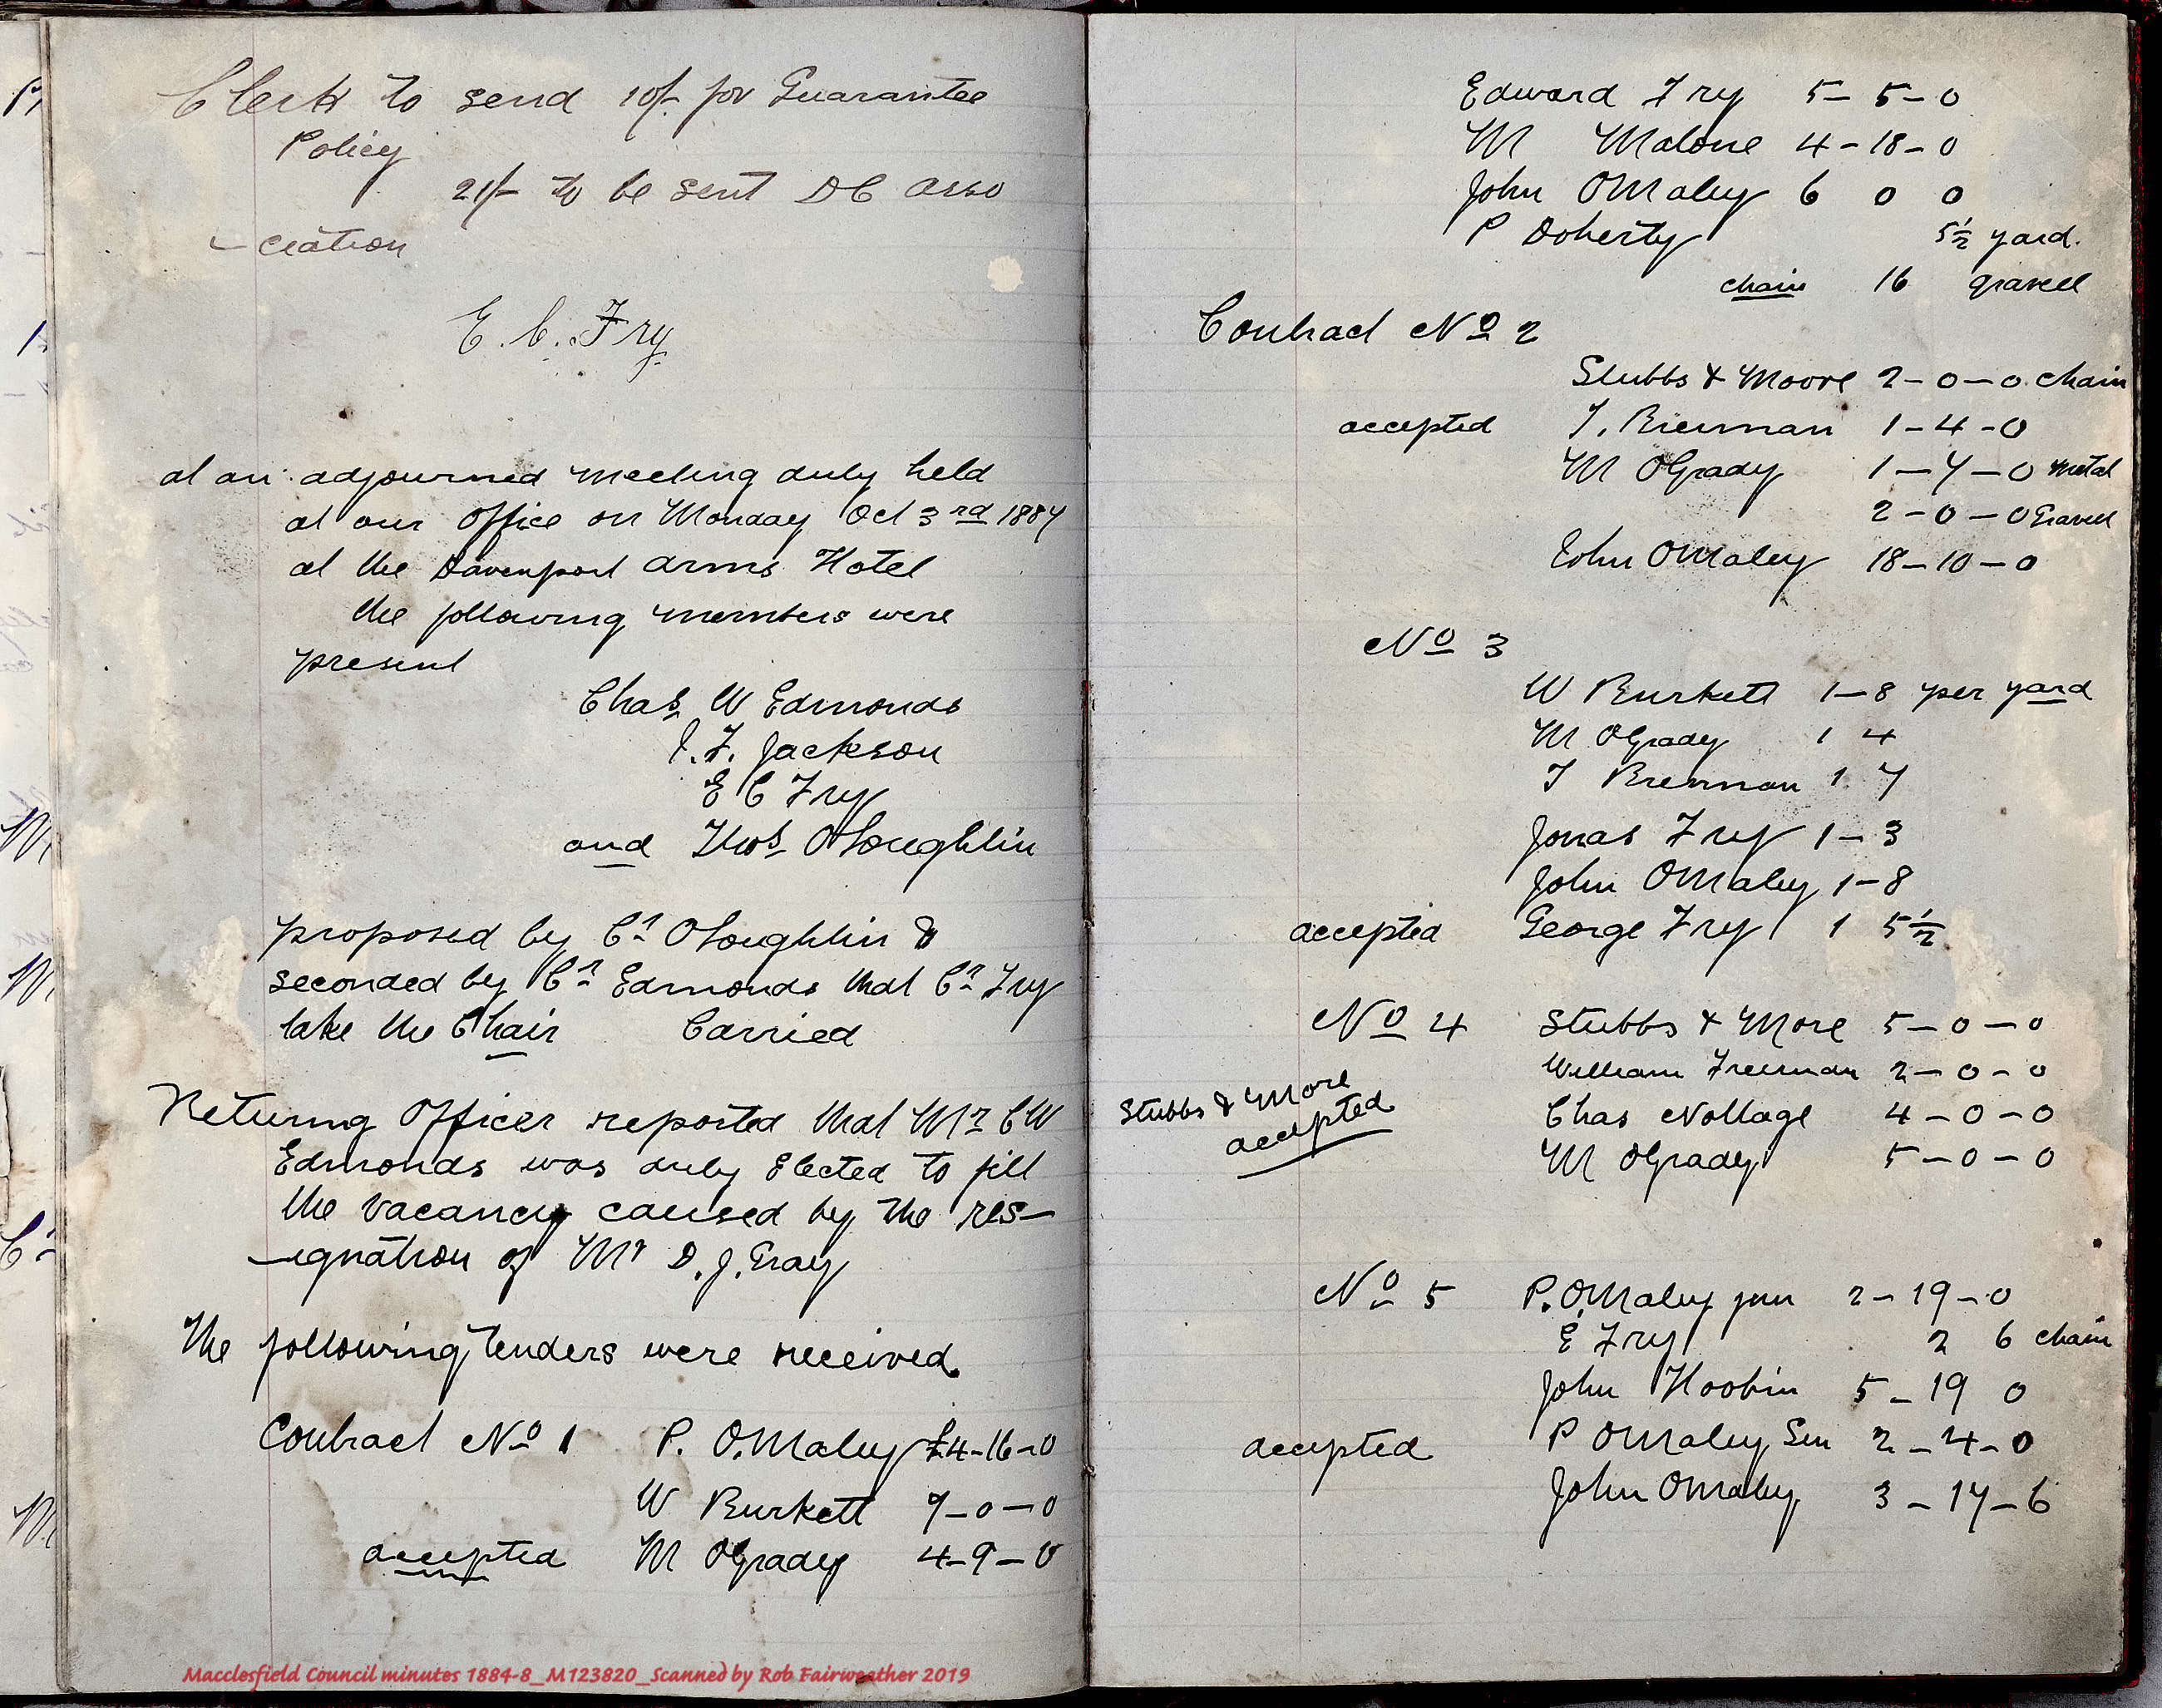 Clerk to send 10/- for Guarantee
Policy
21/- to be sent DC Asso
- ciation
E. C. Fry
at an adjourned meeting duly held
at our Office on Monday Oct 3rd 1887
at the Davenport Arms Hotel
the following members were
present
Chas W Edmonds
J. F. Jackson
E C Fry
and Thos OLoughlin
proposed by Cr OLoughlin &
seconded by Cr Edmonds that Cr Fry
take the Chair Carried
Returing Officer reported that Mr C W
Edmonds was duly Elected to fill
the vacancy caused by the res-
-ignation of Mr D. J. Gray
The following tenders were received
Contract No 1 P. O.Maley £4-16-0
W Burkett 7-0-0
accepted M OGrady 4-9-0
Edward Fry 5-5-0
M Malone 4-18-0
John OMaley 6 0 0
P Doherty 5½ yard.
chain 16 gravell
Contract No 2
Stubbs & Moore 2-0-0 chain
accepted T. Brennan 1-4-0
M OGrady 1-7-0 metal
2-0-0 Gravell
John OMaley 18-10-0
No 3
W Burkett 1-8 per yard
M OGrady 1 4
T Brennan 1 7
Jonas Fry 1-3
John OMaley 1-8
accepted George Fry 1 5½
No 4 Stubbs & More 5-0-0
William Freeman 2-0-0
Stubbs & More Chas Nottage 4-0-0
accepted M OGrady 5-0-0
No 5 P. OMaley jun 2-19-0
E Fry 2 6 chain
John Hoobin 5-19 0
accepted P OMaley Sen 2-4-0
John OMaley 3-17-6
Macclesfield Council minutes 1884-8_M123820_Scanned by Rob Fairweather 2019